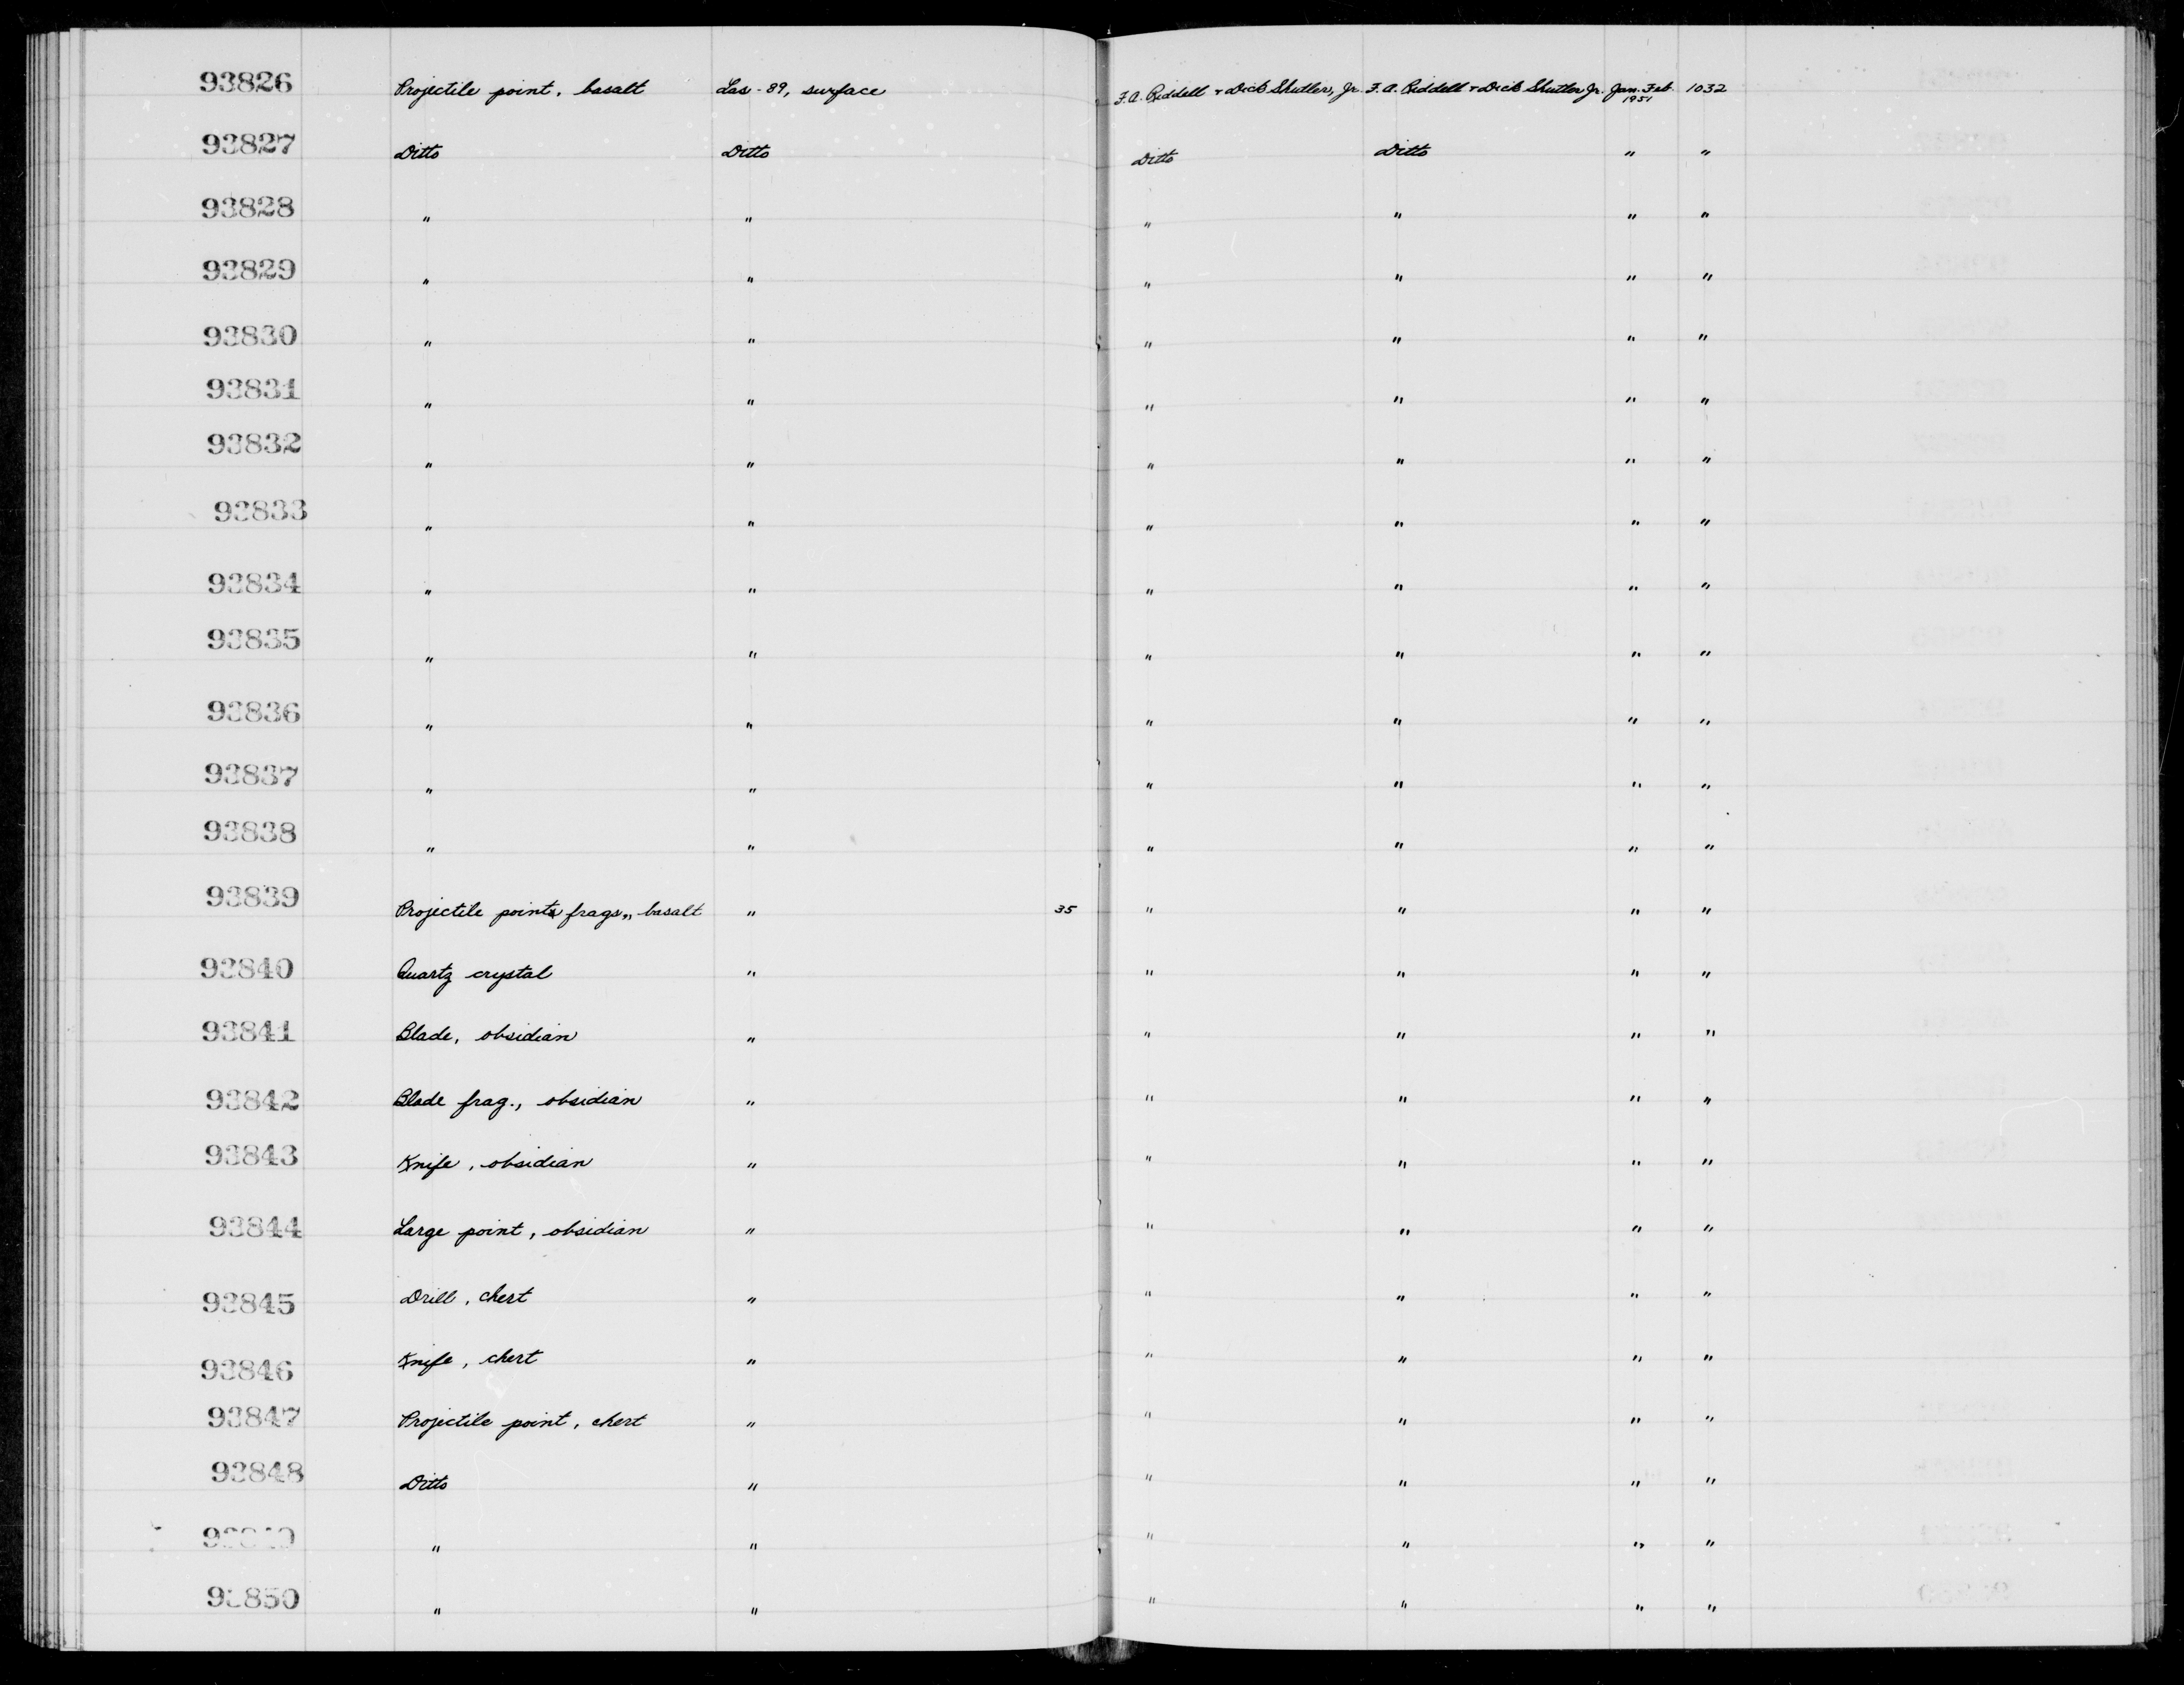 93826 Projectile point, basalt Las-89, surface F.A. Riddell + Dick Shutler, Jr. F.A. Riddell + Dick Shutler Jr. Jan.-Feb. 1951 1032
93827 Ditto Ditto Ditto Ditto " "
93828 " " " " " "
93829 " " " " " "
93830 " " " " " "
93831 " " " " " "
93832 " " " " " "
93833 " " " " " "
93834 " " " " " "
93835 " " " " " "
93836 " " " " " "
93837 " " " " " "
93838 " " " " " "
93839 Projectile point frags., basalt " 35 " " " "
93840 Quartz crystal " " " " "
93841 Blade, obsidian " " " " "
93842 Blade frag., obsidian " " " " "
93843 Knife, obsidian " " " " "
93844 Large point, obsidian " " " " "
93845 Drill, chert " " " " "
93846 Knife, chert " " " " "
93847 Projectile point, chert " " " " "
93848 Ditto " " " " "
93849 " " " " " "
93850 " " " " " "